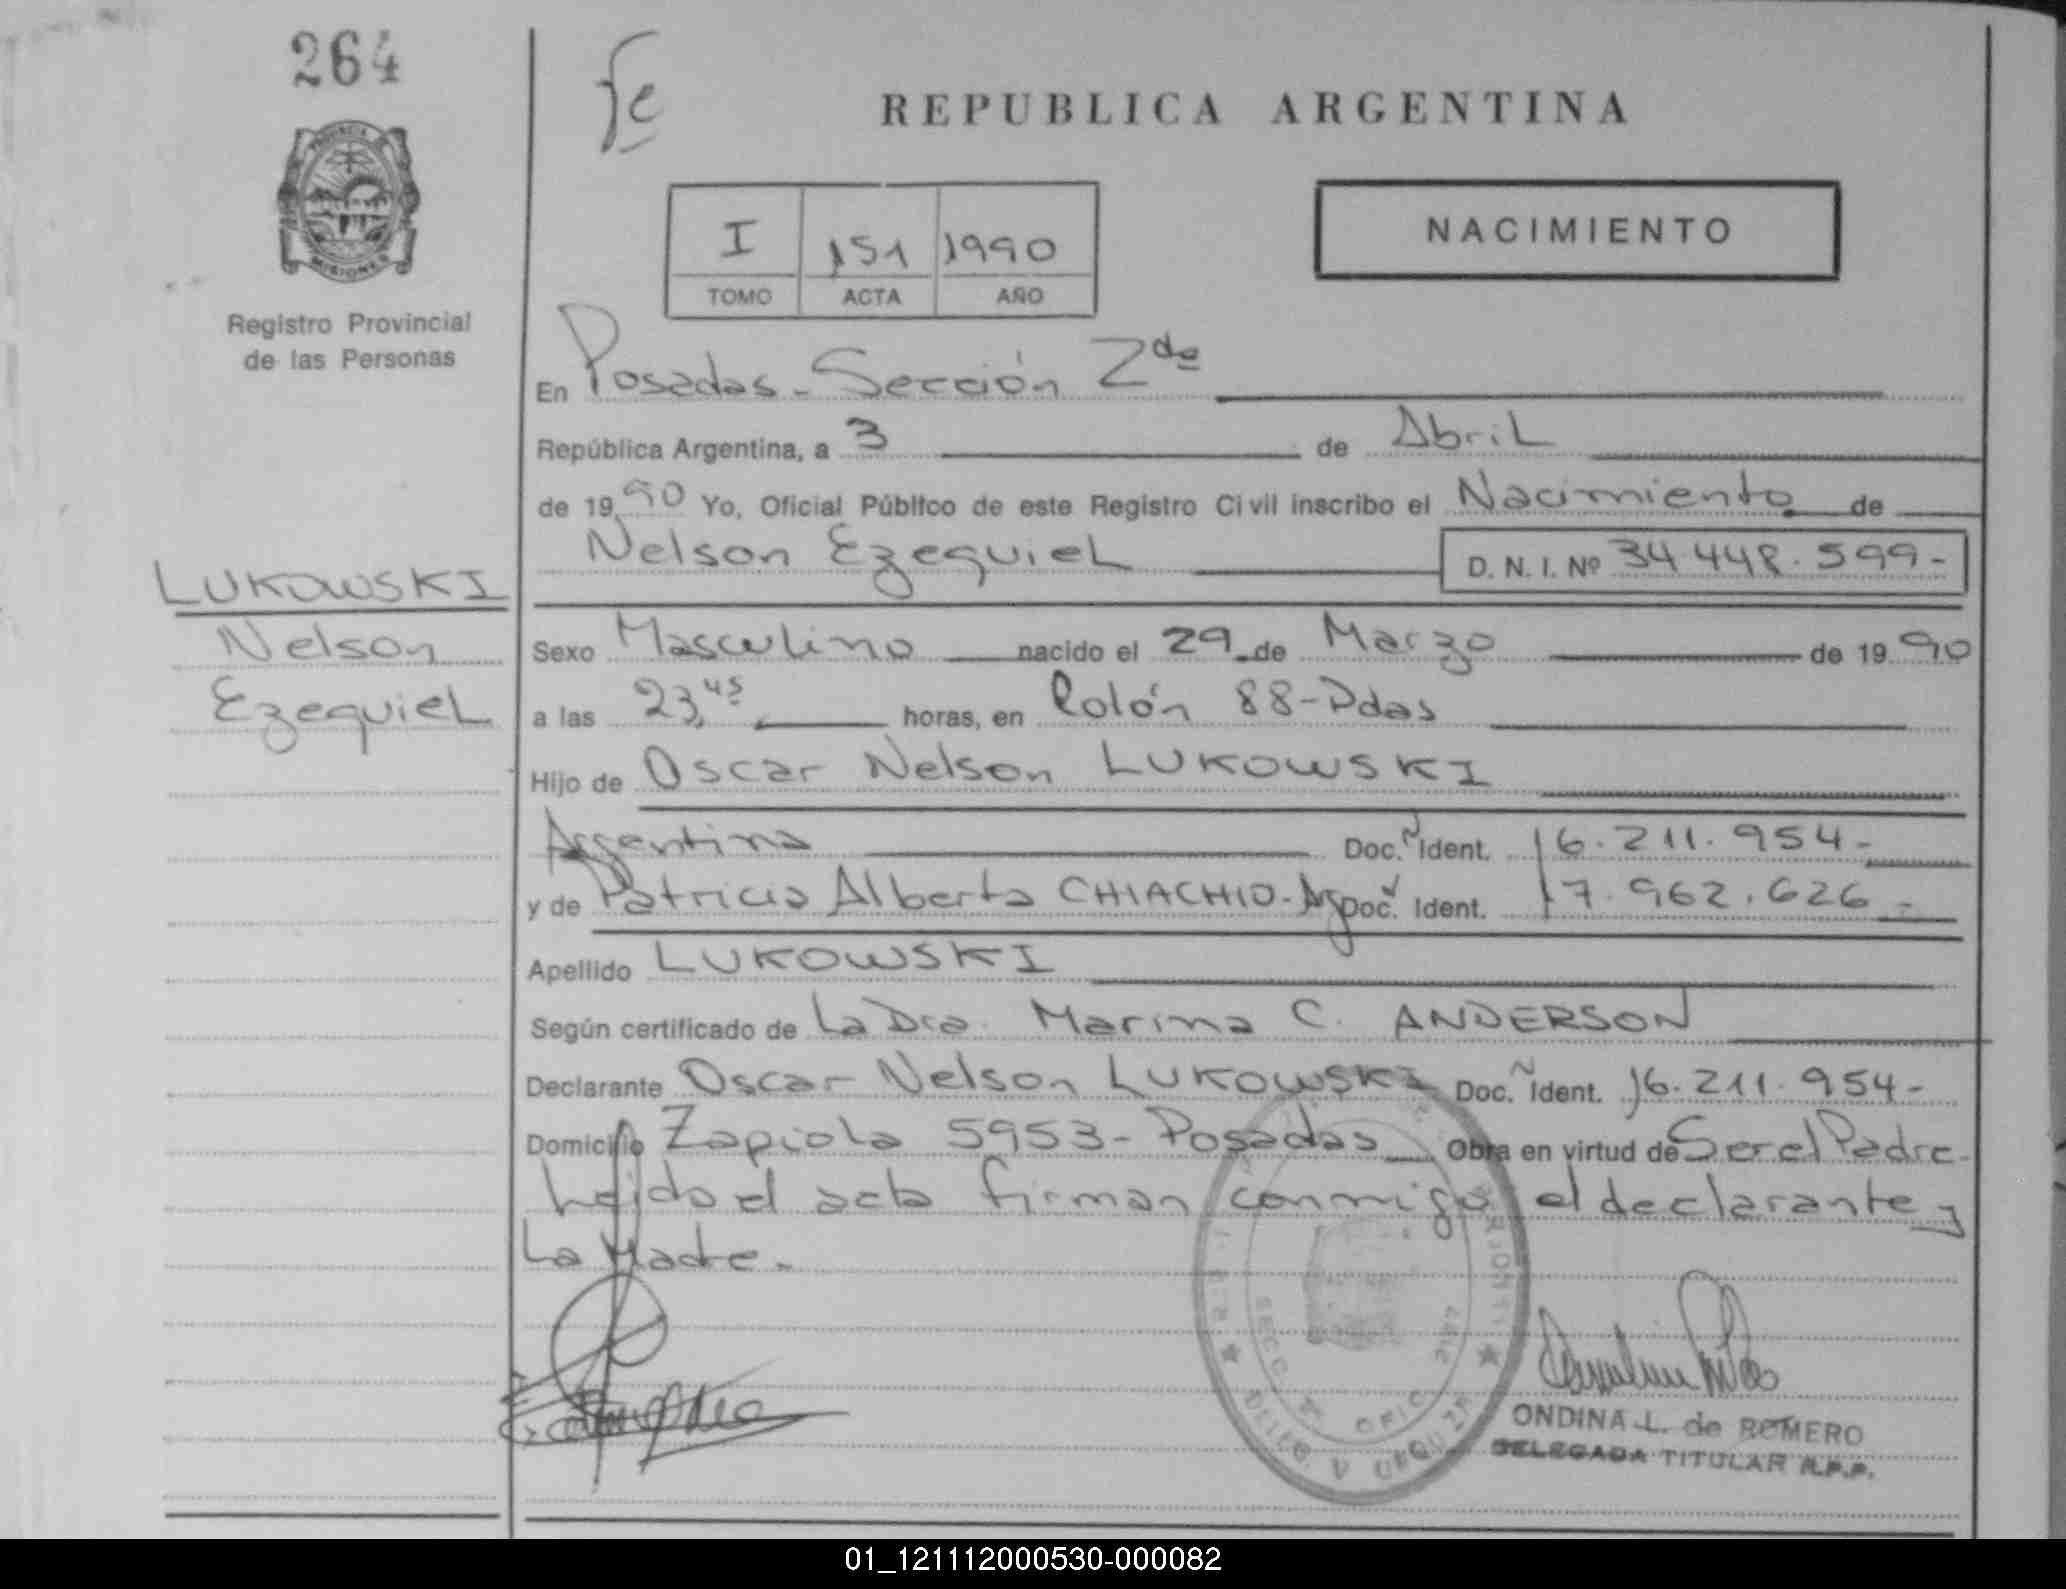 264
Fe
REPUBLICA ARGENTINA
PROVINCIA
MISIONES
Registro Provincial
de las Personas
I 151 1990
TOMO ACTA AÑO
NACIMIENTO
En Posadas - Sección 2da
República Argentina, a 3 de Abril
de 1990 Yo, Oficial Público de este Registro Civil inscribo el Nacimiento de
Nelson Ezequiel D. N. I. Nº 34 448.599-
LUKOWSKI
Nelson
Ezequiel
Sexo Masculino nacido el 29 de Marzo de 1990
a las 23,45 horas, en Colón 88-Pdas
Hijo de Oscar Nelson LUKOWSKI
Argentina Doc. Ident. 16.211.954-
y de Patricia Alberta CHIACHIO- Arg Doc. Ident. 17.962.626-
Apellido LUKOWSKI
Según certificado de La Dra. Marina C. ANDERSON
Declarante Oscar Nelson LUKOWSKI Doc. Ident. 16.211.954-
Domicilio Zapiola 5953- Posadas Obra en virtud de Ser el Padre-
Leído el acta firman conmigo el declarante y
La Madre.-
SECC. 2ª OFIC.
ONDINA L. de ROMERO
DELEGADA TITULAR R.P.P.
01_121112000530-000082